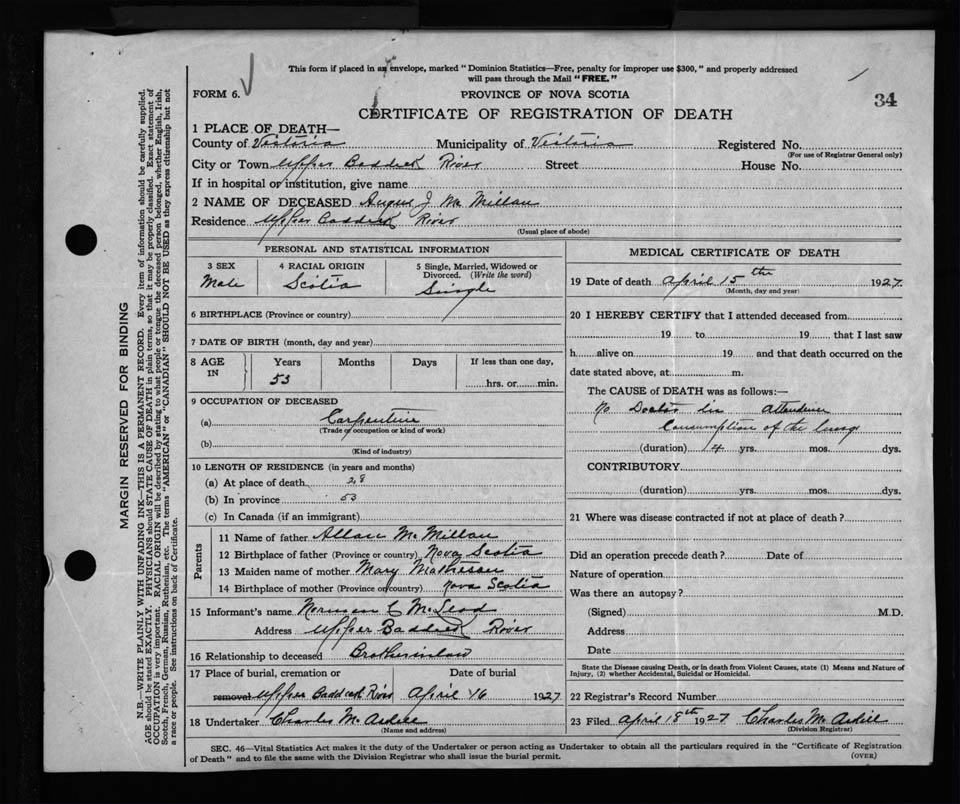 This form if placed in an envelope, marked "Dominion Statistics—Free, penalty for improper use $300," and properly addressed
will pass through the Mail "FREE."
FORM 6.
PROVINCE OF NOVA SCOTIA
34
CERTIFICATE OF REGISTRATION OF DEATH
1 PLACE OF DEATH—
County of Victoria Municipality of Victoria Registered No.
(For use of Registrar General only)
City or Town Upper Baddeck River Street House No.
If in hospital or institution, give name
2 NAME OF DECEASED Angus J Mc Millan
Residence Upper Baddeck River
(Usual place of abode)
PERSONAL AND STATISTICAL INFORMATION
3 SEX 4 RACIAL ORIGIN 5 Single, Married, Widowed or
Divorced. (Write the word)
Male Scotia Single
6 BIRTHPLACE (Province or country)
7 DATE OF BIRTH (month, day and year)
8 AGE Years Months Days If less than one day,
IN 53 hrs. or min.
9 OCCUPATION OF DECEASED
(a) Carpenter
(Trade or occupation or kind of work)
(b)
(Kind of industry)
10 LENGTH OF RESIDENCE (in years and months)
(a) At place of death 28
(b) In province 53
(c) In Canada (if an immigrant)
Parents
11 Name of father Allan Mc Millan
12 Birthplace of father (Province or country) Nova Scotia
13 Maiden name of mother Mary Matheson
14 Birthplace of mother (Province or country) Nova Scotia
15 Informant's name Norman C McLeod
Address Upper Baddeck River
16 Relationship to deceased Brotherinlaw
17 Place of burial, cremation or Date of burial
removal Upper Baddeck River April 16 1927
18 Undertaker Charles Mc Ardill
(Name and address)
MEDICAL CERTIFICATE OF DEATH
19 Date of death April 15th 1927
(Month, day and year)
20 I HEREBY CERTIFY that I attended deceased from
19 to 19 that I last saw
h alive on 19 and that death occurred on the
date stated above, at m.
The CAUSE of DEATH was as follows:—
No Doctor in attendence
Consumption of the lungs
(duration) 4 yrs. mos. dys.
CONTRIBUTORY
(duration) yrs. mos. dys.
21 Where was disease contracted if not at place of death?
Did an operation precede death? Date of
Nature of operation
Was there an autopsy?
(Signed) M.D.
Address
Date
State the Disease causing Death, or in death from Violent Causes, state (1) Means and Nature of
Injury, (2) whether Accidental, Suicidal or Homicidal.
22 Registrar's Record Number
23 Filed April 18th 1927 Charles Mc Ardill
(Division Registrar)
SEC. 46—Vital Statistics Act makes it the duty of the Undertaker or person acting as Undertaker to obtain all the particulars required in the "Certificate of Registration
of Death" and to file the same with the Division Registrar who shall issue the burial permit.
(OVER)
MARGIN RESERVED FOR BINDING
N.B.—WRITE PLAINLY WITH UNFADING INK—THIS IS A PERMANENT RECORD. Every item of information should be carefully supplied.
AGE should be stated EXACTLY. PHYSICIANS should STATE CAUSE OF DEATH in plain terms, so that it may be properly classified. Exact statement of
OCCUPATION is very important. RACIAL ORIGIN will be described by stating to what people or tongue the deceased person belonged, whether English, Irish,
Scotch, French, German, Russian, Ruthenian, etc. The terms "AMERICAN" or "CANADIAN" SHOULD NOT BE USED as they express citizenship but not
a race or people. See instructions on back of Certificate.